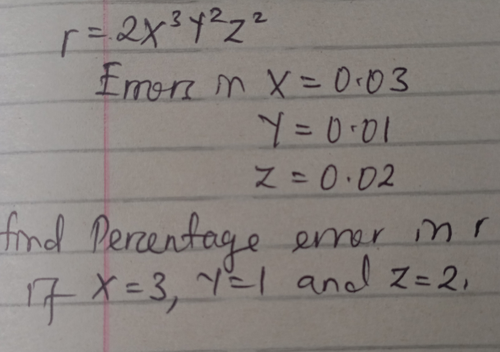 r = 2X³Y²Z²
Errors in X = 0.03
Y = 0.01
Z = 0.02
find Percentage error in r
if X=3, Y=1 and Z=2.